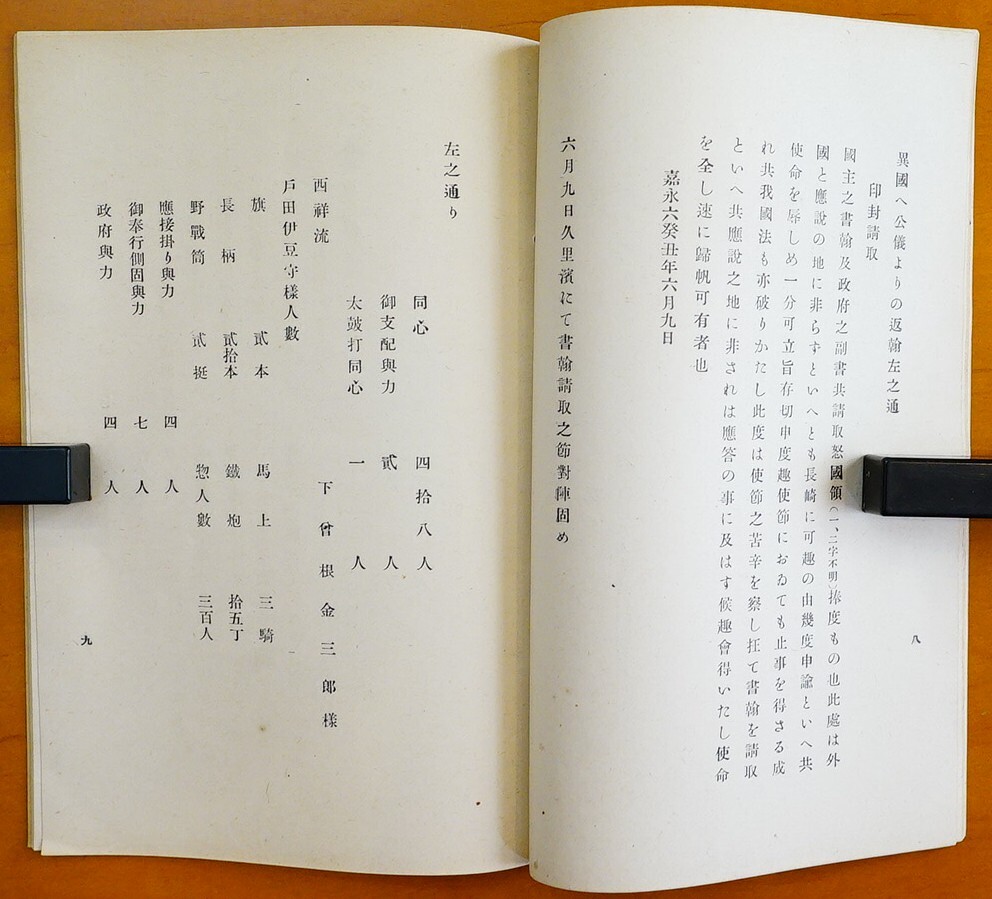 異國へ公儀よりの返翰左之通
印封請取
國主之書翰及政府之副書共請取怒國領(一、三字不明)捧度もの也此處は外
國と應說の地に非らすといへとも長崎に可趣の由幾度申諭といへ共
使命を辱しめ一分可立旨存切申度趣使節におゐても止事を得さる成
れ共我國法も亦破りかたし此度は使節之苦辛を察し抂て書翰を請取
といへ共應說之地に非されは應答の事に及はす候趣會得いたし使命
を全し速に歸帆可有者也
嘉永六癸丑年六月九日
六月九日久里濱にて書翰請取之節對陣固め
八
左之通り
同心 四拾八人
御支配與力 貳人
太皷打同心 一人
下曾根金三郎樣
西祥流
戶田伊豆守樣人數
旗 貳本 馬上 三騎
長柄 貳拾本 鐵炮 拾五丁
野戰筒 貳挺 惣人數 三百人
應接掛り與力 四人
御奉行側固與力 七人
政府與力 四人
九